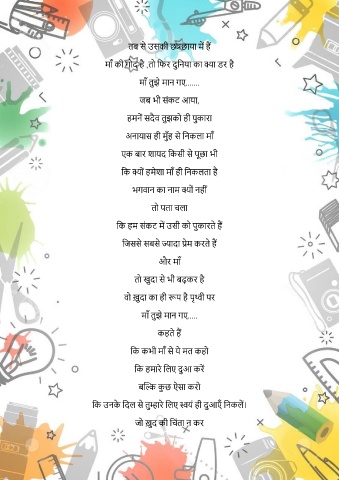 तब से उसकी छत्रछाया में हैं
माँ की गोद है ,तो फिर दुनिया का क्या डर है
माँ तुझे मान गए.......
जब भी संकट आया,
हमनें सदैव तुझको ही पुकारा
अनायास ही मुँह से निकला माँ
एक बार शायद किसी से पूछा भी
कि क्यों हमेशा माँ ही निकलता है
भगवान का नाम क्यों नहीं
तो पता चला
कि हम संकट में उसी को पुकारते हैं
जिससे सबसे ज्यादा प्रेम करते हैं
और माँ
तो खुदा से भी बढ़कर है
वो ख़ुदा का ही रूप है पृथ्वी पर
माँ तुझे मान गए.....
कहते हैं
कि कभी माँ से ये मत कहो
कि हमारे लिए दुआ करें
बल्कि कुछ ऐसा करो
कि उनके दिल से तुम्हारे लिए स्वयं ही दुआएँ निकलें।
जो ख़ुद की चिंता न कर